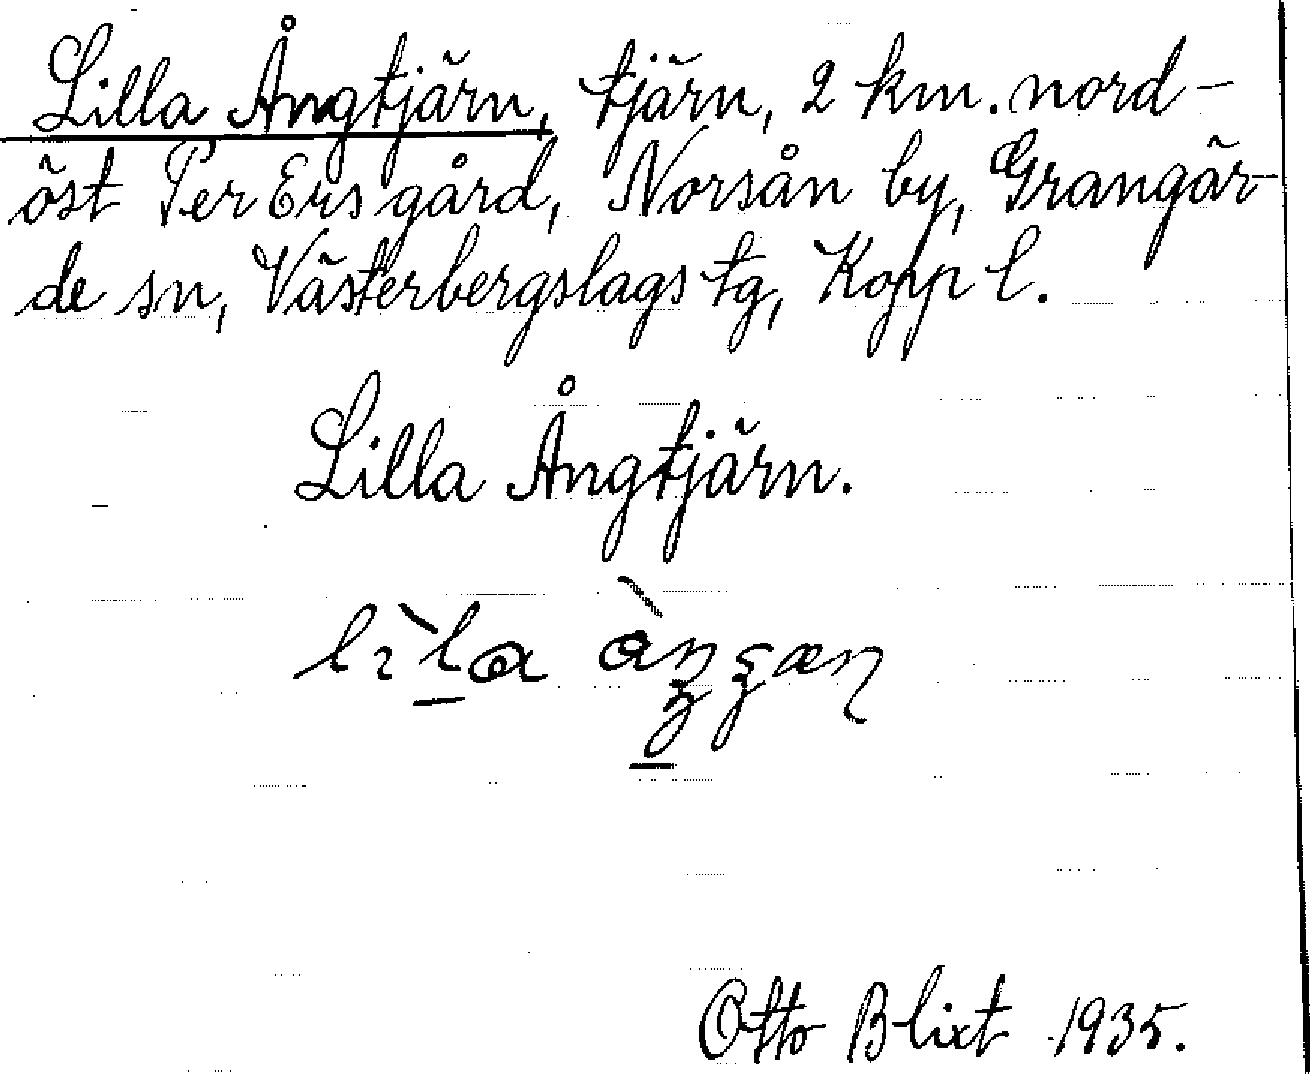 Lilla Ångtjärn, tjärn, 2 km. nord-
öst Per Ers gård, Norsån by, Grangär-
de sn, Västerbergslags tg, Kopp l.
Lilla Ångtjärn.
Otto Blixt 1935.